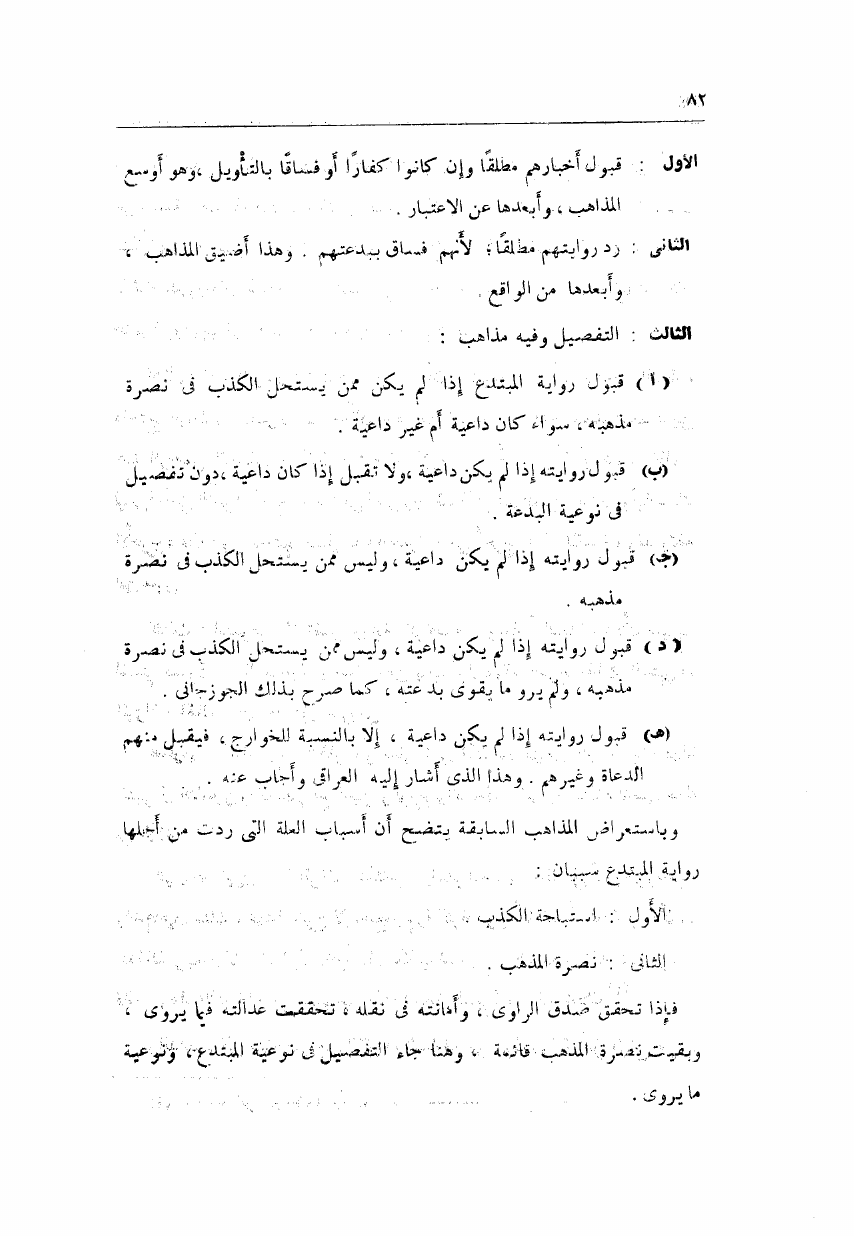 ٨٢
الأول : قبول أخبارهم مطلقًا وإن كانوا كفارًا أو فساقًا بالتأويل ،وهو أوسع
المذاهب ، وأبعدها عن الاعتبار .
الثانى : رد روايتهم مطلقًا؛ لأنهم فساق ببدعتهم . وهذا أضيق المذاهب ،
وأبعدها من الواقع .
الثالث : التفصيل وفيه مذاهب :
( أ ) قبول رواية المبتدع إذا لم يكن ممن يستحل الكذب فى نصرة
مذهبه ، سواء كان داعية أم غير داعية .
(ب) قبول روايته إذا لم يكن داعية ،ولا تقبل إذا كان داعية ،دون تفصيل
فى نوعية البدعة .
(جـ) قبول روايته إذا لم يكن داعية ، وليس ممن يستحل الكذب فى نصرة
مذهبه .
( د ) قبول روايته إذا لم يكن داعية ، وليس ممن يستحل الكذب فى نصرة
مذهبه ، ولم يرو ما يقوى بدعته ، كما صرح بذلك الجوزجانى .
(هـ) قبول روايته إذا لم يكن داعية ، إلا بالنسبة للخوارج ، فيقبل منهم
الدعاة وغيرهم . وهذا الذى أشار إليه العراقى وأجاب عنه .
وباستعراض المذاهب السابقة يتضح أن أسباب العلة التى ردت من أجلها
رواية المبتدع سببان :
الأول : استباحة الكذب .
الثانى : نصرة المذهب .
فإذا تحقق صدق الراوى ، وأمانته فى نقله ، تحققت عدالته فيما يروى ،
وبقيت نصرة المذهب قائمة ، وهنا جاء التفصيل فى نوعية المبتدع ، ونوعية
ما يروى .